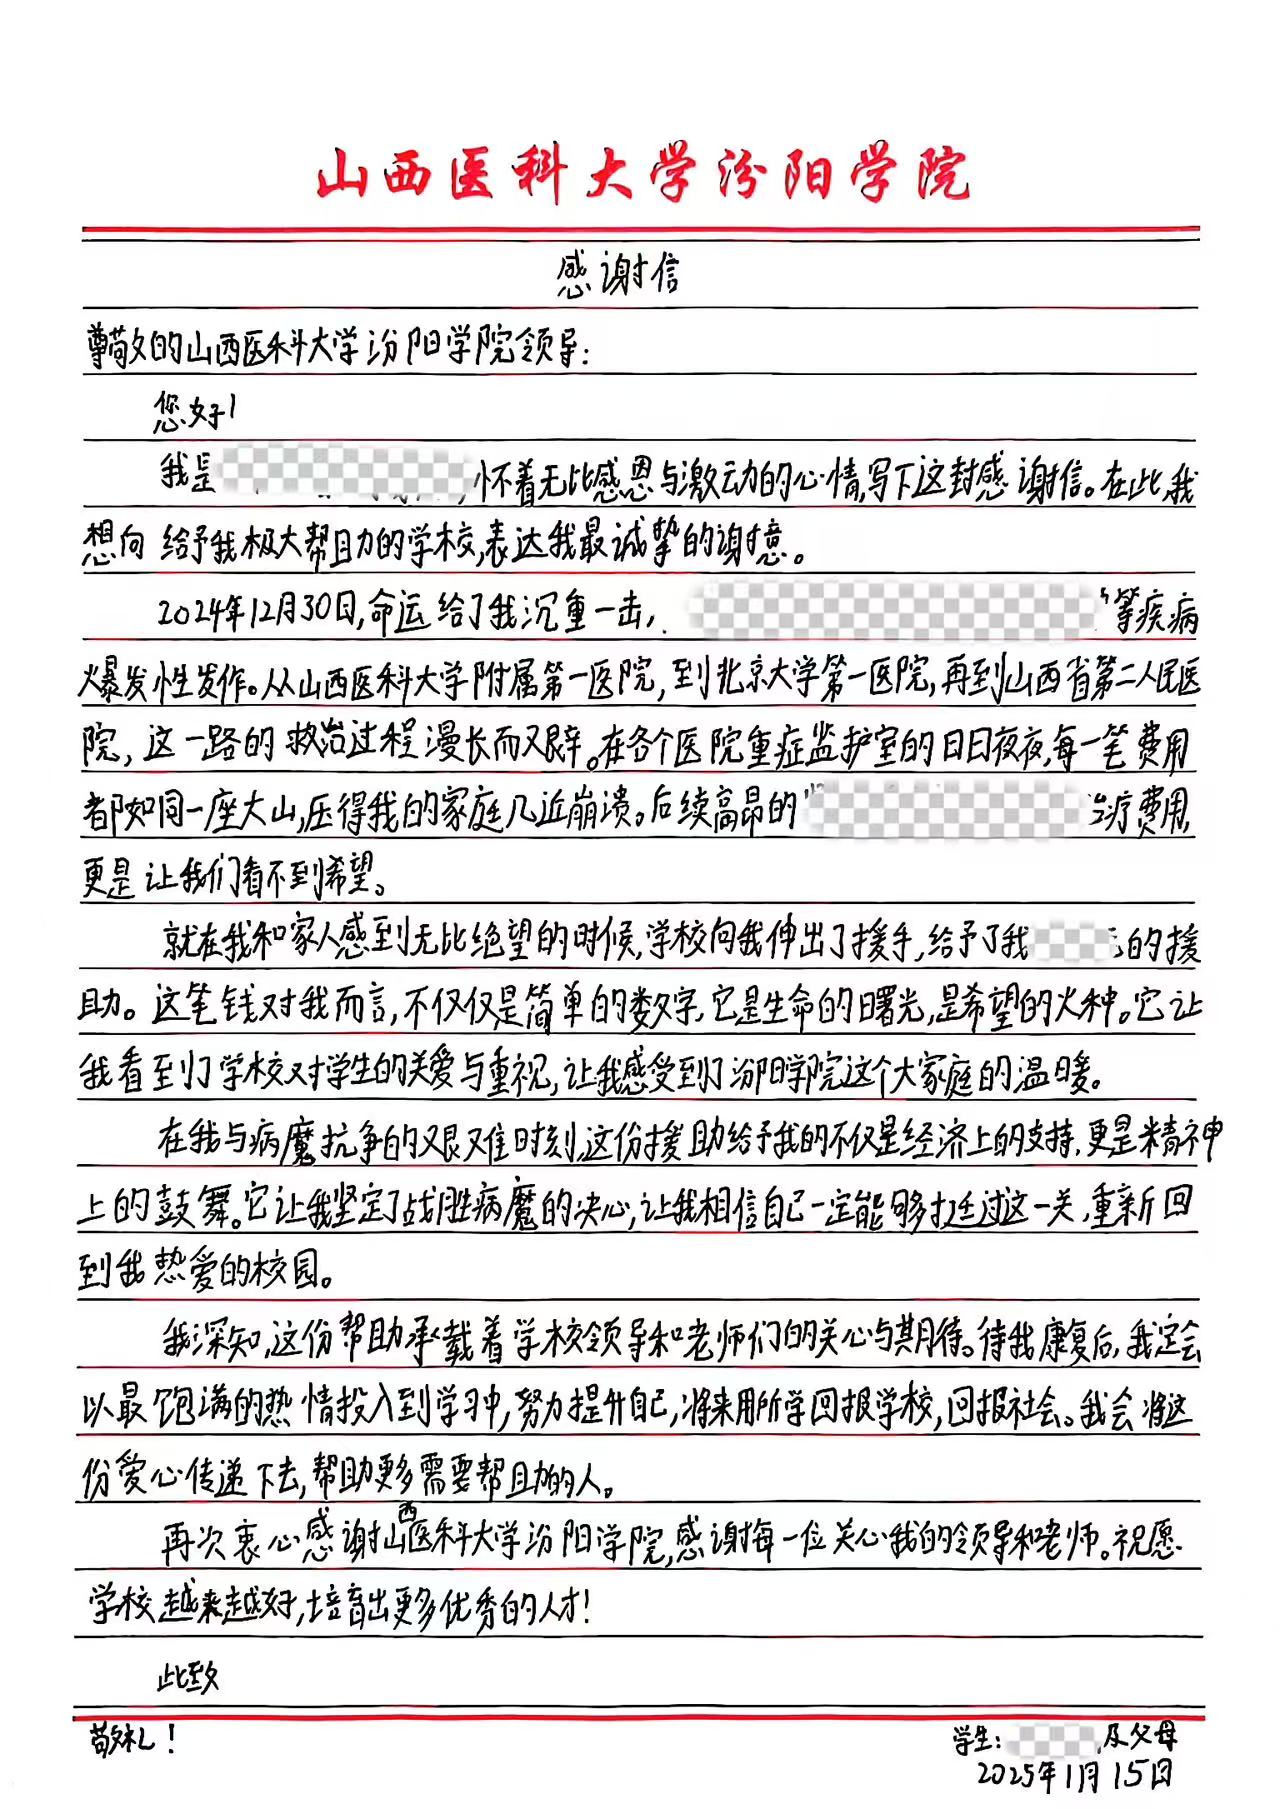 山西医科大学汾阳学院
感谢信
尊敬的山西医科大学汾阳学院领导：
您好！
我是，怀着无比感恩与激动的心情，写下这封感谢信。在此，我
想向给予我极大帮助的学校，表达我最诚挚的谢意。
2024年12月30日，命运给了我沉重一击，等疾病
爆发性发作。从山西医科大学附属第一医院，到北京大学第一医院，再到山西省第二人民医
院，这一路的救治过程漫长而又艰辛。在各个医院重症监护室的日日夜夜，每一笔费用
都如同一座大山，压得我的家庭几近崩溃。后续高昂的治疗费用，
更是让我们看不到希望。
就在我和家人感到无比绝望的时候，学校向我伸出了援手，给予了我元的援
助。这笔钱对我而言，不仅仅是简单的数字，它是生命的曙光，是希望的火种。它让
我看到了学校对学生的关爱与重视，让我感受到了汾阳学院这个大家庭的温暖。
在我与病魔抗争的艰难时刻，这份援助给予我的不仅是经济上的支持，更是精神
上的鼓舞。它让我坚定了战胜病魔的决心，让我相信自己一定能够挺过这一关，重新回
到我热爱的校园。
我深知，这份帮助承载着学校领导和老师们的关心与期待。待我康复后，我定会
以最饱满的热情投入到学习中，努力提升自己，将来用所学回报学校，回报社会。我会将这
份爱心传递下去，帮助更多需要帮助的人。
再次衷心感谢山西医科大学汾阳学院，感谢每一位关心我的领导和老师。祝愿
学校越来越好，培育出更多优秀的人才！
此致
敬礼！
学生：及父母
2025年1月15日